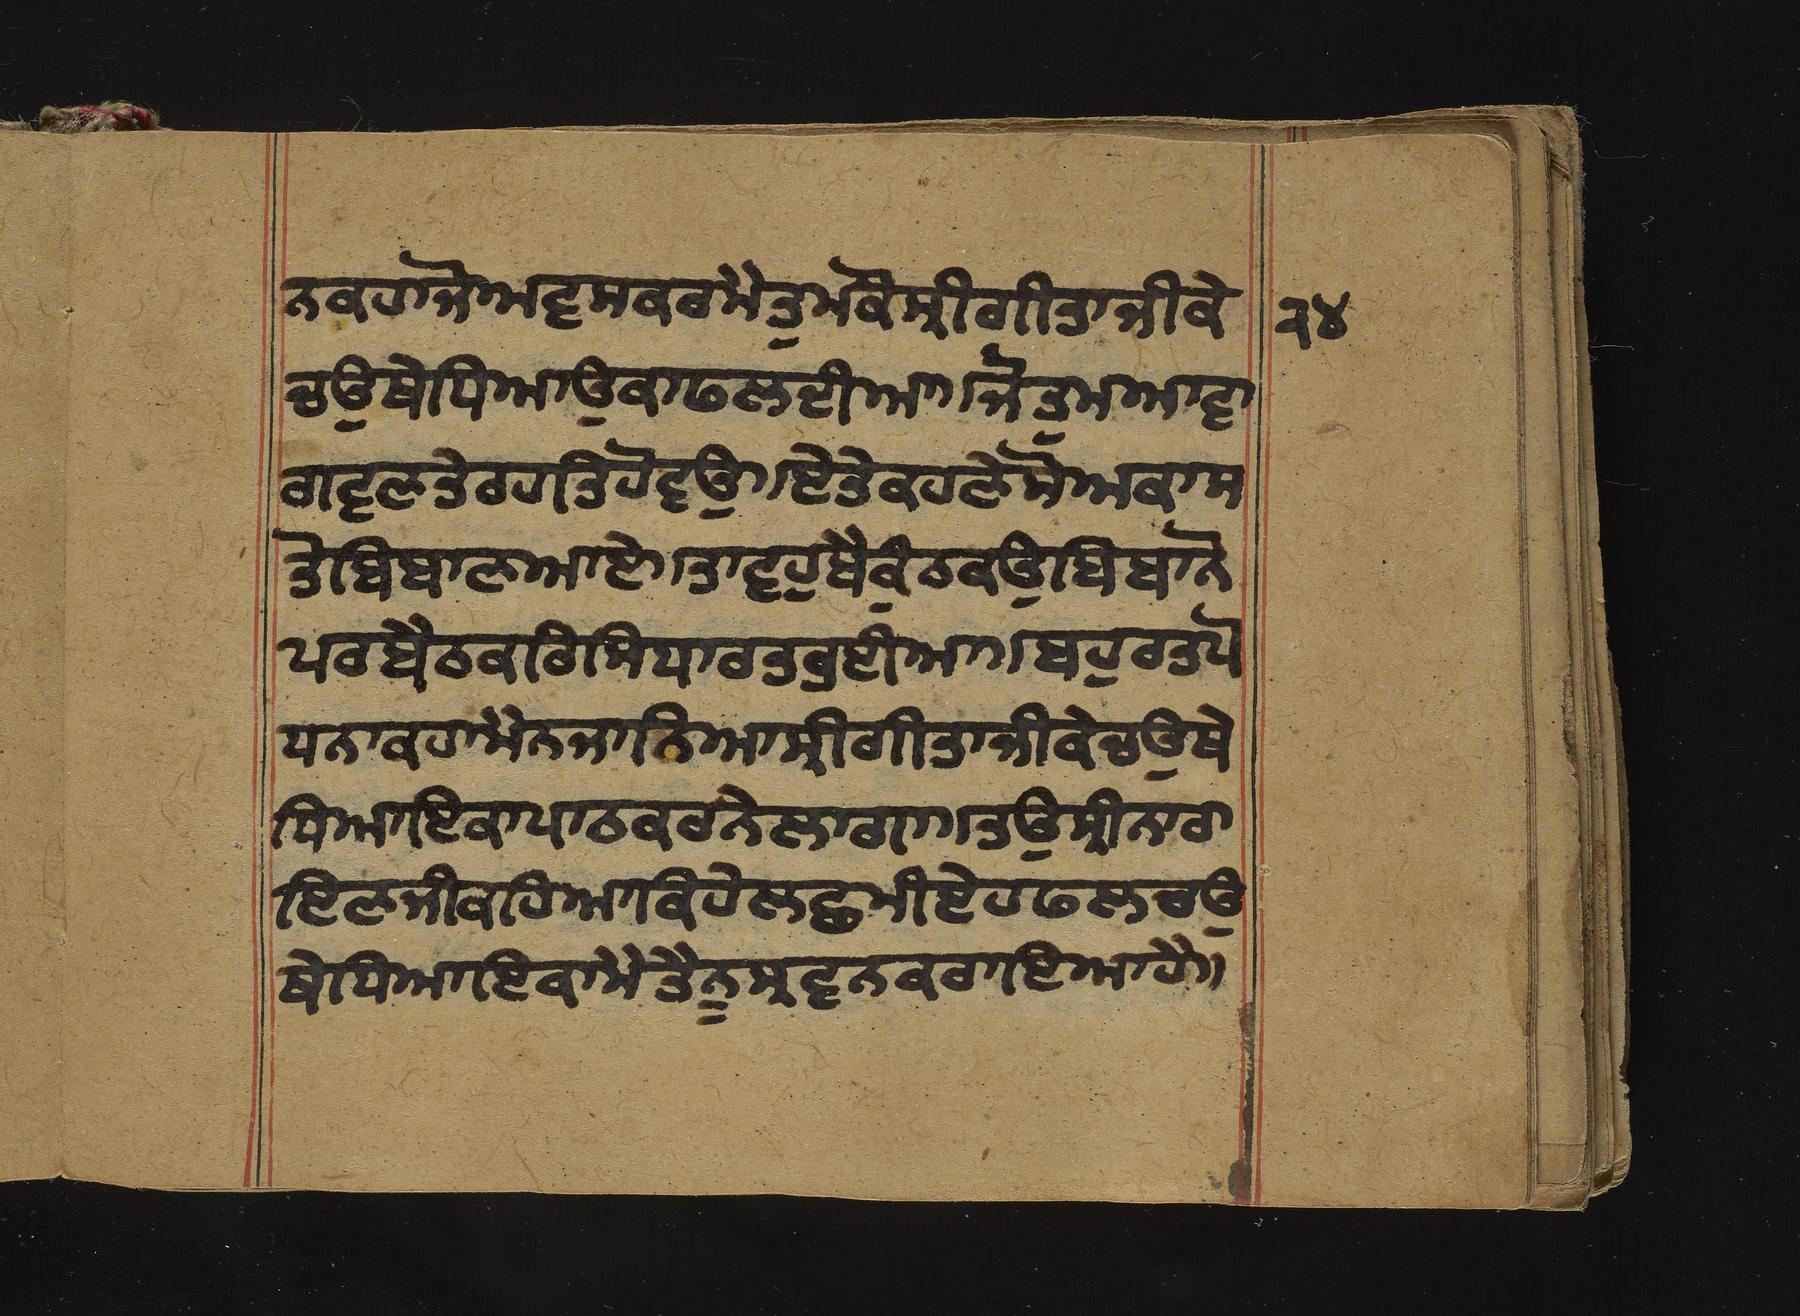 ਨਕਹਾਜੋਅਵਸਕਰਮੈਤੁਮਕੌਸ੍ਰੀਗੀਤਾਜੀਕੇ ੨੪
ਚਉਥੇਧਿਆਉਕਾਫਲਦੀਆ।ਜੋਤੁਮਆਵਾ
ਗਵਣਤੇਰਹਤਿਹੋਵਉ।ਏਤੇਕਹਣੇਸੋਅਕਾਸ
ਤੋਬਿਬਾਣਆਏ।ਤਾਵਹੁਬੈਕੁੰਠਕਉਬਿਬਾਨੋ
ਪਰਬੈਠਕਰਿਸਿਧਾਰਤਭੁਈਆ।ਬਹੁਰਤਪੋ
ਧਨਾਕਹਾਮੈਨਜਾਨਿਆਸ੍ਰੀਗੀਤਾਜੀਕੇਚਉਥੇ
ਧਿਆਇਕਾਪਾਠਕਰਨੇਲਾਗਾ।ਤਉਸ੍ਰੀਨਾਰਾ
ਇਣਜੀਕਹਿਆਕਿਹੇਲਛਮੀਏਹਫਲਚਉ
ਥੇਧਿਆਇਕਾਮੈਤੈਨੁਸ੍ਰਵਨਕਰਾਇਆਹੈ॥